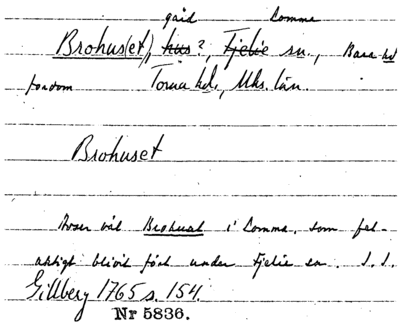 gård Lomma
Brohus(et), hus?, Fjelie sn., Bara hd
fordom Torna hd., Mhs. län.
Brohuset
Avser väl Brohuset i Lomma, som fel-
aktigt blivit förd under Fjelie sn. I.I.
Gillberg 1765 s. 154.
Nr 5836.